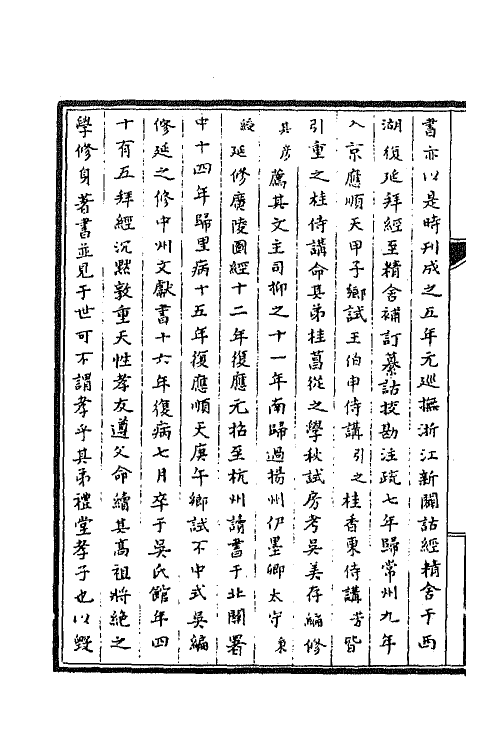 書亦以是時刊成之五年元巡撫浙江新闢詁經精舍于西
湖復延拜經至精舍補訂纂詁挍勘注疏七年歸常州九年
入京應順天甲子鄉試王伯申侍講引之桂香東侍講芳皆
引重之桂侍講命其弟桂菖從之學秋試房考吳美存編修
其彥薦其文主司抑之十一年南歸過揚州伊墨卿太守秉
綬延修廣陵圖經十二年復應元招至杭州讀書于北關署
中十四年歸里病十五年復應順天庚午鄉試不中式吳編
修延之修中州文獻書十六年復病七月卒于吳氏館年四
十有五拜經沉默敦重天性孝友遵父命續其高祖將絶之
學修身著書並見于世可不謂孝乎其弟禮堂孝子也以毀